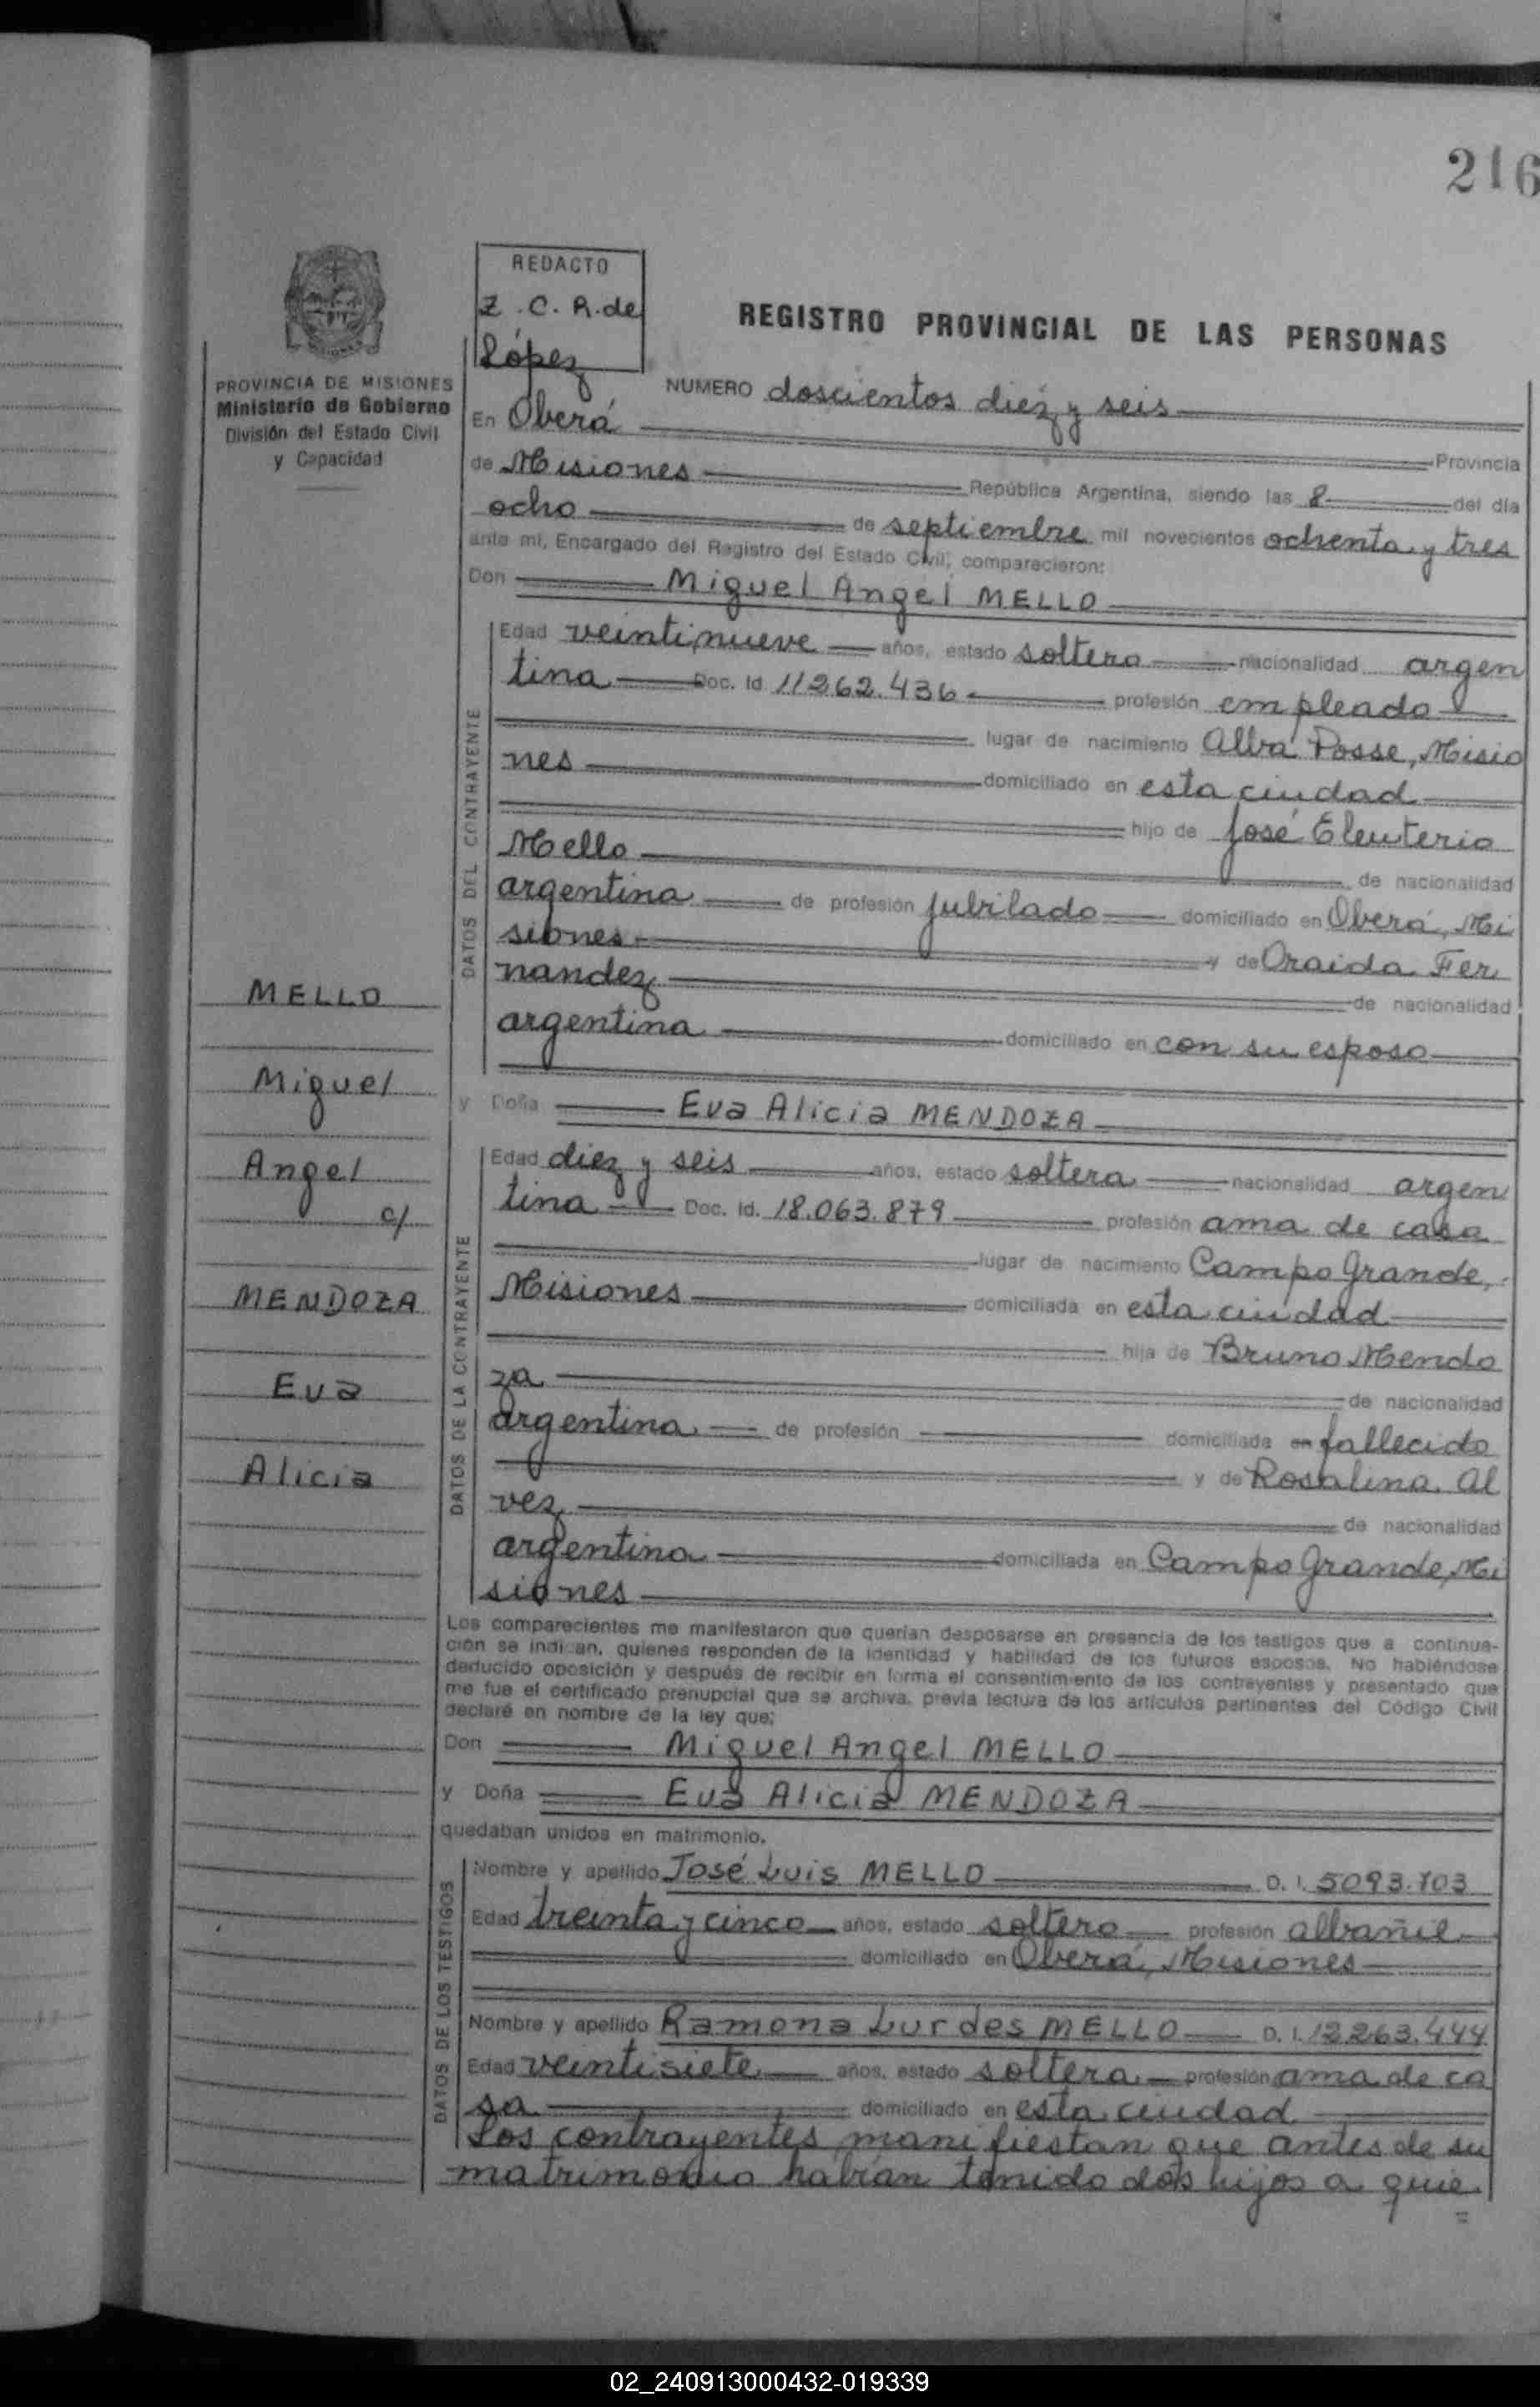 216
REDACTO
Z. C. R. de
López
REGISTRO PROVINCIAL DE LAS PERSONAS
PROVINCIA DE MISIONES
Ministerio de Gobierno
División del Estado Civil
y Capacidad
NUMERO doscientos diez y seis
En Oberá
Provincia
de Misiones República Argentina, siendo las 8 del día
ocho de septiembre mil novecientos ochenta y tres
ante mí, Encargado del Registro del Estado Civil; comparecieron:
Don Miguel Angel MELLO
DATOS DEL CONTRAYENTE
Edad veintinueve años, estado soltero nacionalidad argen
tina Doc. Id 11262.436 profesión empleado
lugar de nacimiento Alba Posse, Misio
nes domiciliado en esta ciudad
hijo de José Eleuterio
Mello de nacionalidad
argentina de profesión jubilado domiciliado en Oberá, Mi
siones y de Oraida Fer
nandez de nacionalidad
argentina domiciliado en con su esposo
y Doña Eva Alicia MENDOZA
DATOS DE LA CONTRAYENTE
Edad diez y seis años, estado soltera nacionalidad argen
tina Doc. Id. 18.063.879 profesión ama de casa
lugar de nacimiento Campo Grande,
Misiones domiciliada en esta ciudad
hija de Bruno Mendo
za de nacionalidad
argentina de profesión domiciliada en fallecido
y de Rosalina Al
vez de nacionalidad
argentina domiciliada en Campo Grande, Mi
siones
MELLO
Miguel
Angel
c/
MENDOZA
Eva
Alicia
Los comparecientes me manifestaron que querían desposarse en presencia de los testigos que a continua-
ción se indican, quienes responden de la identidad y habilidad de los futuros esposos. No habiéndose
deducido oposición y después de recibir en forma el consentimiento de los contrayentes y presentado que
me fue el certificado prenupcial que se archiva, previa lectura de los artículos pertinentes del Código Civil
declaré en nombre de la ley que;
Don Miguel Angel MELLO
y Doña Eva Alicia MENDOZA
quedaban unidos en matrimonio.
DATOS DE LOS TESTIGOS
Nombre y apellido José Luis MELLO D. I. 5093.703
Edad treinta y cinco años, estado soltero profesión albañil
domiciliado en Oberá, Misiones
Nombre y apellido Ramona Lurdes MELLO D. I. 12263.444
Edad veintisiete años, estado soltera profesión ama de ca
sa domiciliado en esta ciudad
Los contrayentes manifiestan que antes de su
matrimonio habían tenido dos hijos a quie
=
02_240913000432-019339